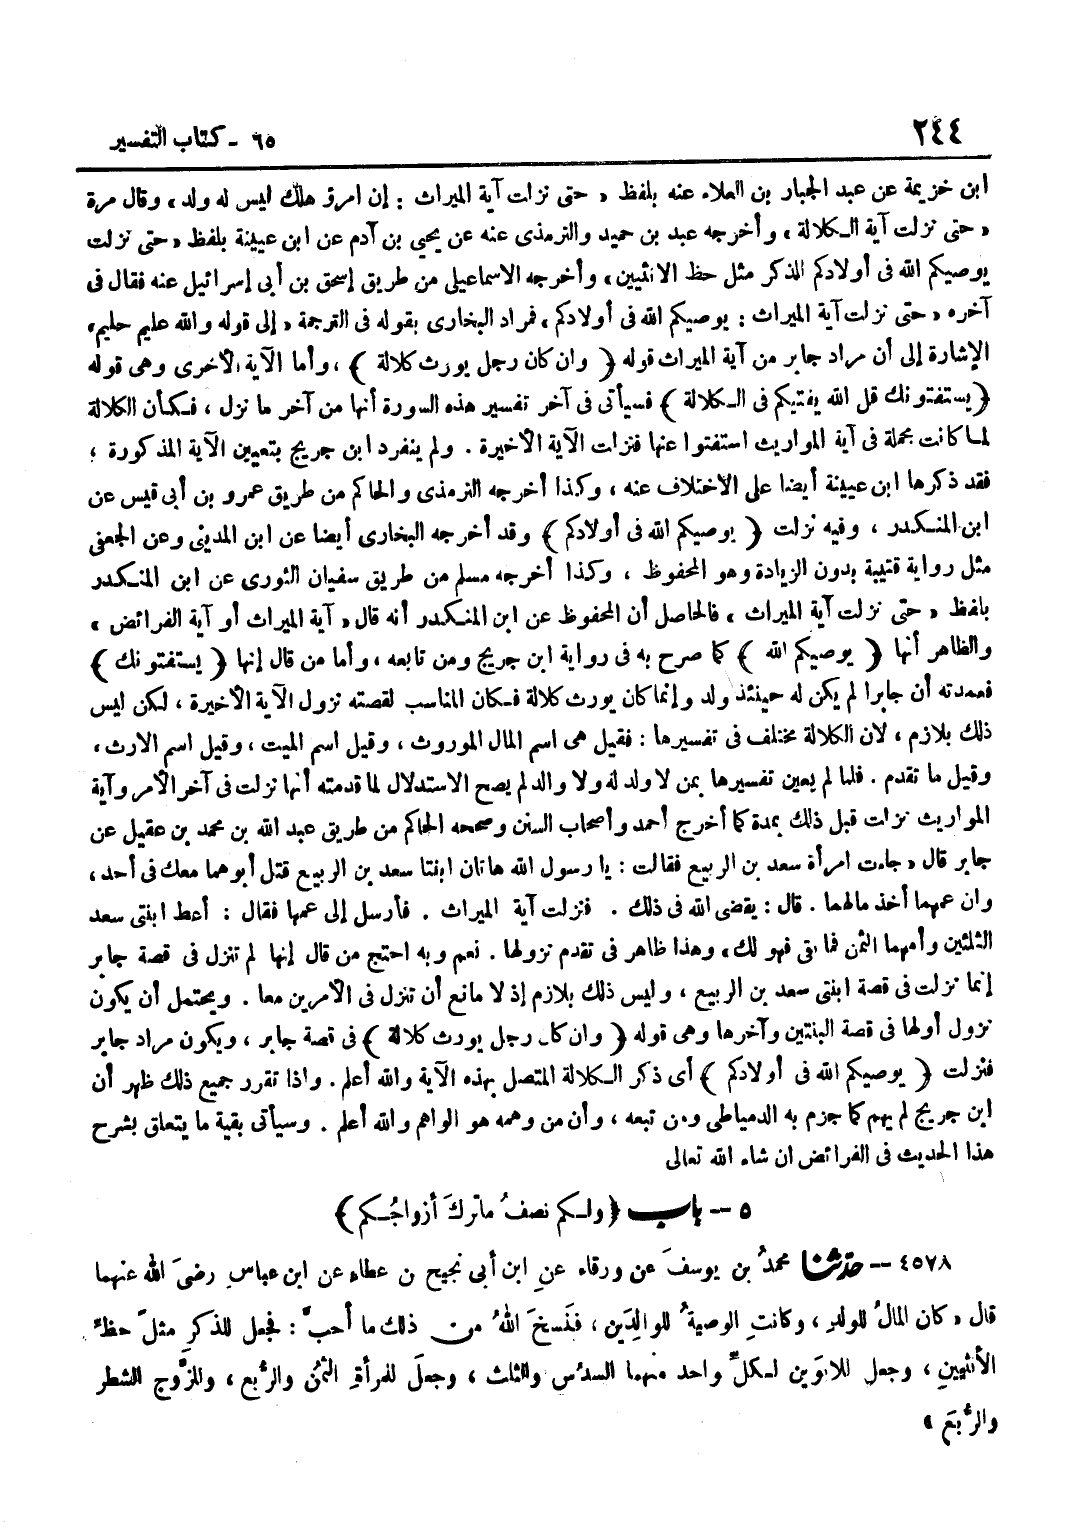 ٢٤٤
٦٥ - كتاب التفسير
ابن خزيمة عن عبد الجبار بن العلاء عنه بلفظ « حتى نزلت آية الميراث : إن امرؤ هلك ليس له ولد » وقال مرة
« حتى نزلت آية الكلالة » وأخرجه عبد بن حميد والترمذى عنه عن يحيى بن آدم عن ابن عيينة بلفظ « حتى نزلت
يوصيكم الله فى أولادكم للذكر مثل حظ الانثيين » وأخرجه الاسماعيلى من طريق إسحق بن أبى إسرائيل عنه فقال فى
آخره « حتى نزلت آية الميراث : يوصيكم الله فى أولادكم » فراد البخارى بقوله فى الترجمة « إلى قوله والله عليم حليم »
الإشارة إلى أن مراد جابر من آية الميراث قوله ﴿ وان كان رجل يورث كلالة ﴾ ، وأما الآية الأخرى وهى قوله
﴿ يستفتونك قل الله يفتيكم فى الكلالة ﴾ فسيأتى فى آخر تفسير هذه السورة أنها من آخر ما نزل ، فكأن الكلالة
لما كانت مجملة فى آية المواريث استفتوا عنها فنزلت الآية الأخيرة . ولم ينفرد ابن جريج بتعيين الآية المذكورة ؛
فقد ذكرها ابن عيينة أيضا على الاختلاف عنه ، وكذا أخرجه الترمذى والحاكم من طريق عمرو بن أبى قيس عن
ابن المنكدر ، وفيه نزلت ﴿ يوصيكم الله فى أولادكم ﴾ وقد أخرجه البخارى أيضا عن ابن المدينى وعن الجعفى
مثل رواية قتيبة بدون الزيادة وهو المحفوظ ، وكذا أخرجه مسلم من طريق سفيان الثورى عن ابن المنكدر
بلفظ « حتى نزلت آية الميراث » فالحاصل أن المحفوظ عن ابن المنكدر أنه قال « آية الميراث أو آية الفرائض »
والظاهر أنها ﴿ يوصيكم الله ﴾ كما صرح به فى رواية ابن جريج ومن تابعه ، وأما من قال إنها ﴿ يستفتونك ﴾
فعمدته أن جابرا لم يكن له حينئذ ولد وإنما كان يورث كلالة فكان المناسب لقصته نزول الآية الأخيرة ، لكن ليس
ذلك بلازم ، لان الكلالة مختلف فى تفسيرها : فقيل هى اسم المال الموروث ، وقيل اسم الميت ، وقيل اسم الارث ،
وقيل ما تقدم . فلما لم يعين تفسيرها بمن لا ولد له ولا والد لم يصح الاستدلال لما قدمته أنها نزلت فى آخر الأمر وآية
المواريث نزلت قبل ذلك بمدة كما أخرج أحمد وأصحاب السنن وصححه الحاكم من طريق عبد الله بن محمد بن عقيل عن
جابر قال « جاءت امرأة سعد بن الربيع فقالت : يا رسول الله هاتان ابنتا سعد بن الربيع قتل أبوهما معك فى أحد ،
وان عمهما أخذ مالهما . قال : يقضى الله فى ذلك . فنزلت آية الميراث . فأرسل إلى عمها فقال : أعط ابنتى سعد
الثلثين وأمهما الثمن فما بقى فهو لك » وهذا ظاهر فى تقدم نزولها . نعم وبه احتج من قال إنها لم تنزل فى قصة جابر
إنما نزلت فى قصة ابنتى سعد بن الربيع ، وليس ذلك بلازم إذ لا مانع أن تنزل فى الأمرين معا . ويحتمل أن يكون
نزول أولها فى قصة البنتين وآخرها وهى قوله ﴿ وان كان رجل يورث كلالة ﴾ فى قصة جابر ، ويكون مراد جابر
فنزلت ﴿ يوصيكم الله فى أولادكم ﴾ أى ذكر الكلالة المتصل بهذه الآية والله أعلم . واذا تقرر جميع ذلك ظهر أن
ابن جريج لم يهم كما جزم به الدمياطى ومن تبعه ، وأن من وهمه هو الواهم والله أعلم . وسيأتى بقية ما يتعلق بشرح
هذا الحديث فى الفرائض ان شاء الله تعالى
٥ -- باب ﴿ ولكم نصفُ ما تركَ أزواجُكم ﴾
٤٥٧٨ -- حدّثنا محمدُ بن يوسفَ عن ورقاء عنِ ابن أبي نجيح عن عطاء عن ابن عباسٍ رضىَ الله عنهما
قال « كان المالُ للولدِ ، وكانتِ الوصيةُ للوالِدَين ، فنَسخَ اللهُ من ذلك ما أحبَّ : فجعل للذكرِ مثلَ حظِّ
الأنثيينِ ، وجعل للابوَين لكلِّ واحد منهما السدُس والثلث ، وجعلَ للمرأةِ الثمُنَ والرُّبع ، وللزَّوج الشطر
والرُّبعَ »